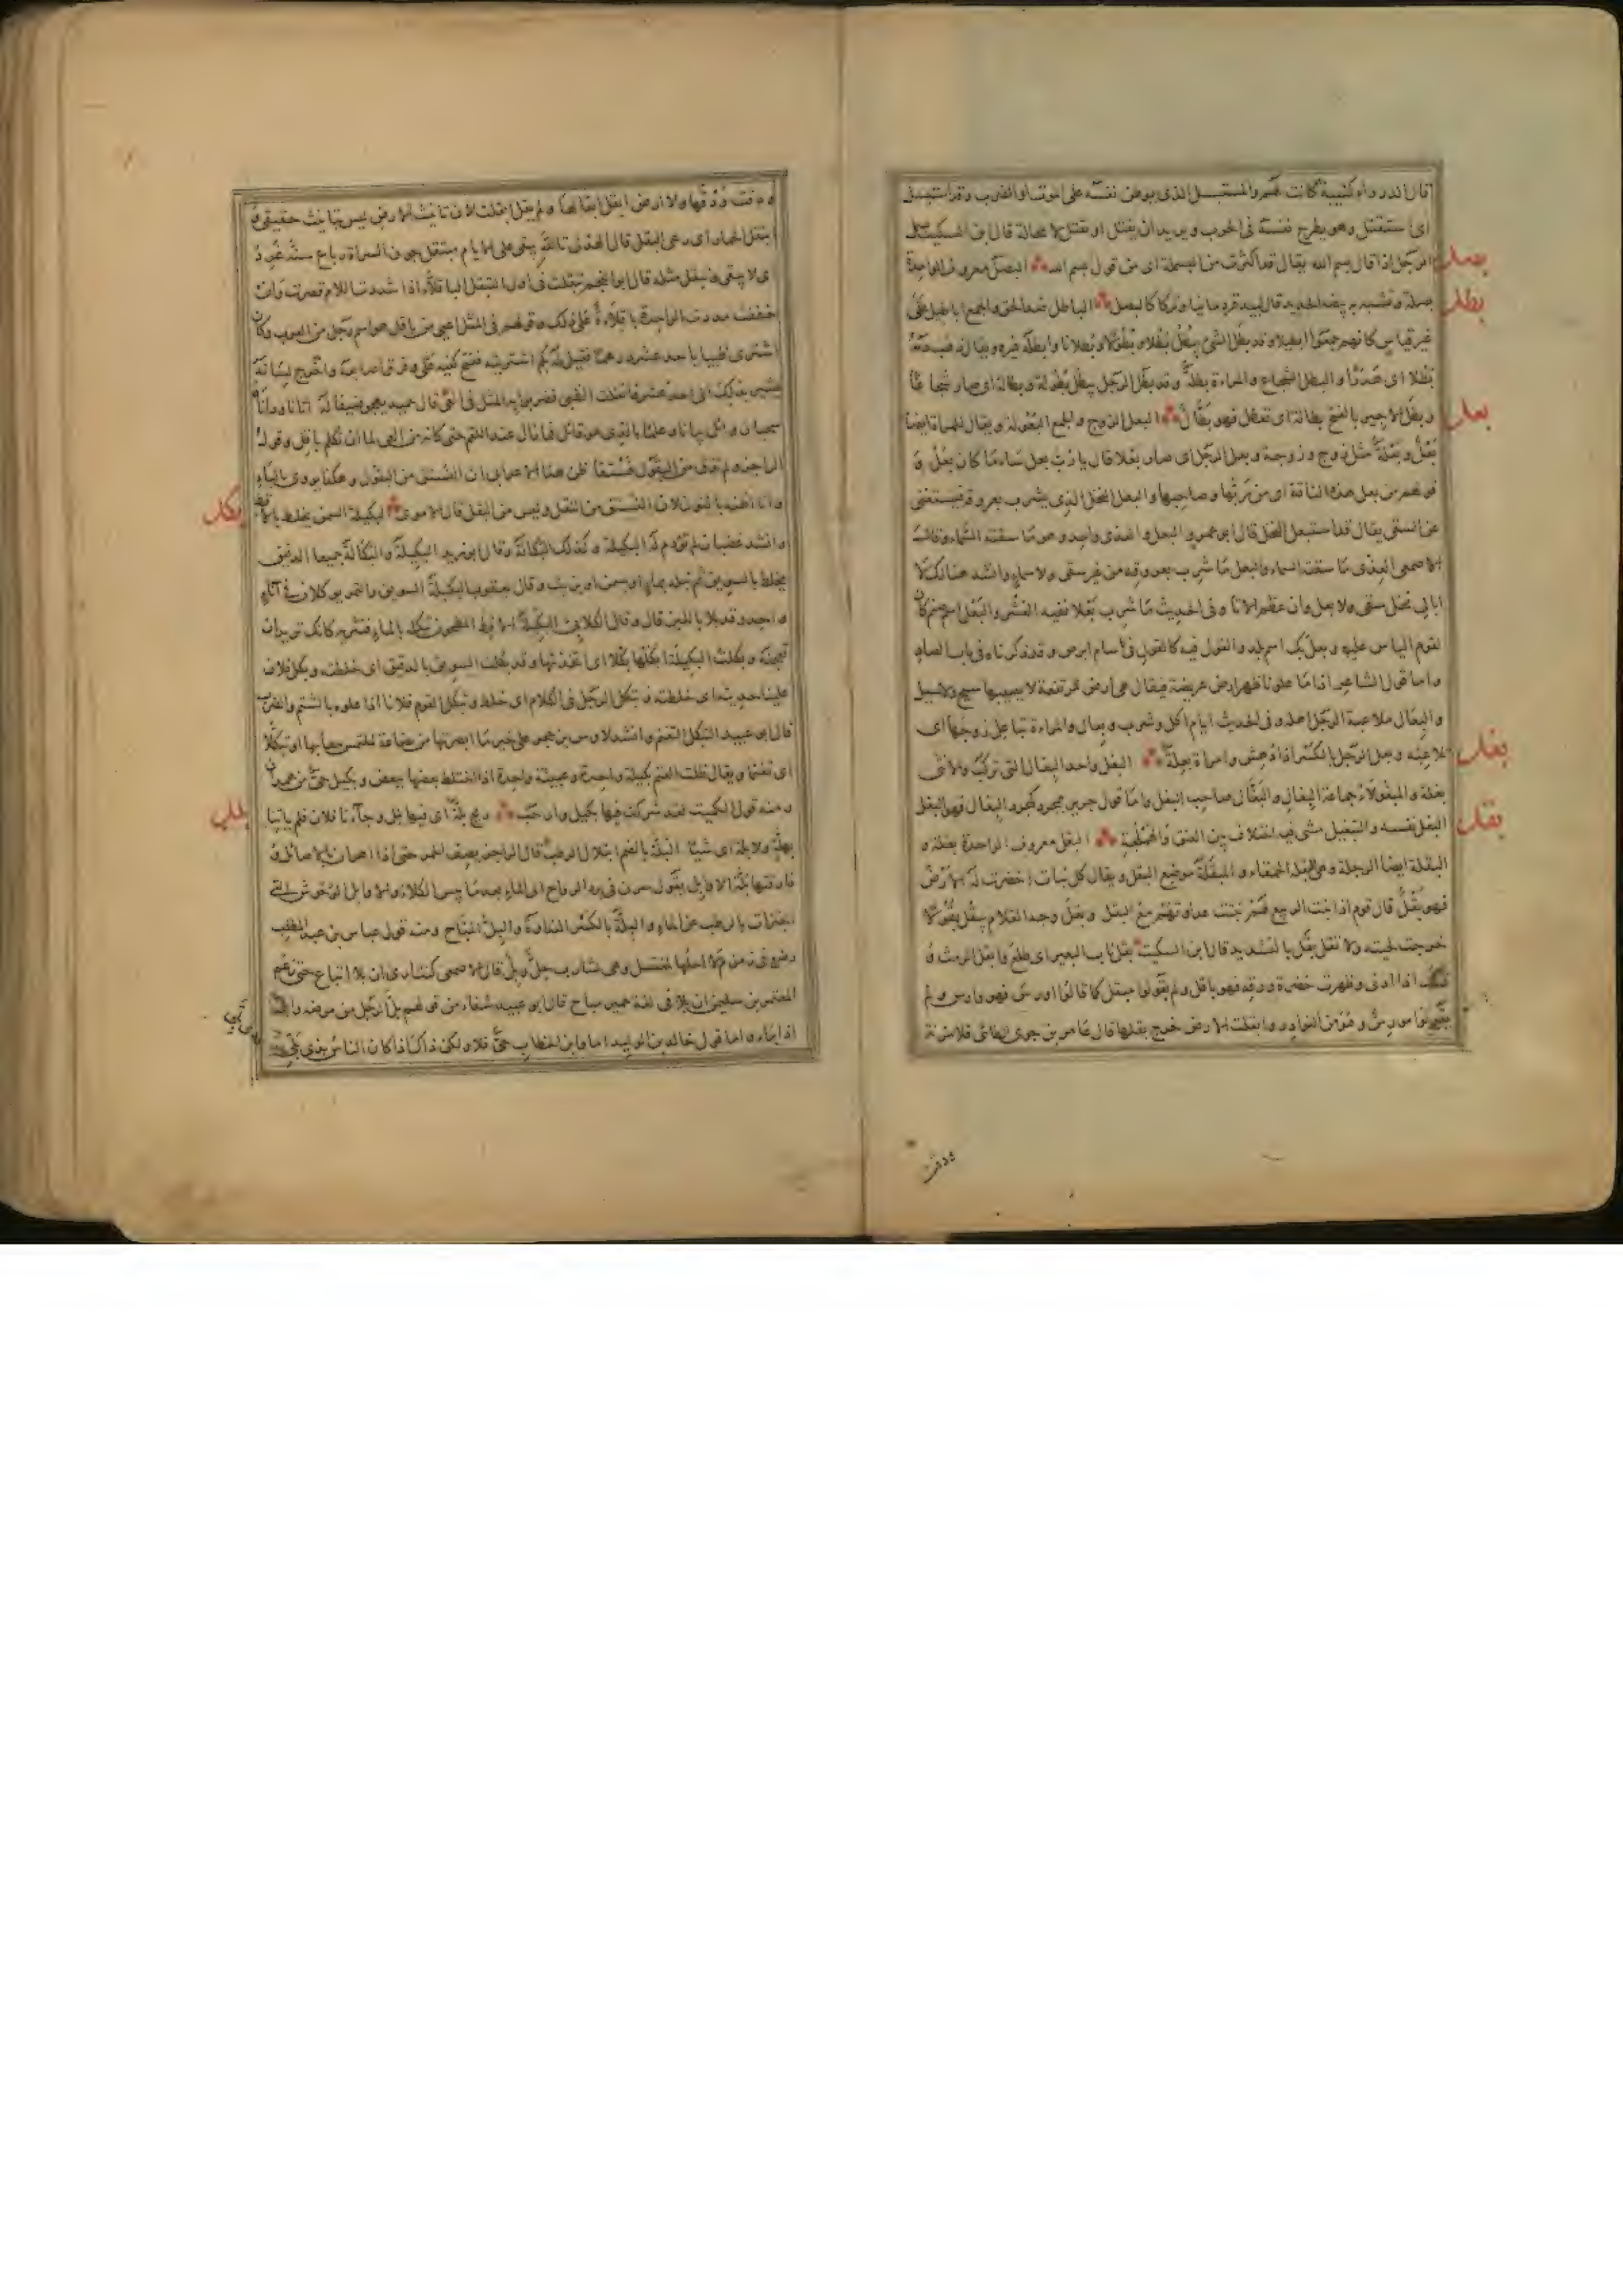 اى استقتل وهو يطرح نفسه فى الحرب ويريد ان يقتل او يقتل لا محالة قال ابن السكيت
بسمل الرجل اذا قال بسم الله يقال قد اكثرت من البسملة اى من قول بسم الله البصل معروف الواحدة
بصل
بصلة وتشبه به بيضة الحديد قال لبيد قردمانيا وتركا كالبصل الباطل ضد الحق والجمع اباطيل على
بطل
غير قياس كانهم جمعوا ابطيلا وقد بطل الشئ يبطل بطلا وبطولا وبطلانا وابطله غيره ويقال ذهب دمه
بطلا اى هدرا والبطل الشجاع والمراة بطلة وقد بطل الرجل يبطل بطولة وبطالة اى صار شجاعا
وبطل الاجير بالفتح بطالة اى تعطل فهو بطال البعل الزوج والجمع البعولة ويقال للمراة ايضا
بعل
بعل وبعلة مثل زوج وزوجة وبعل الرجل اى صار بعلا قال يا رب بعل ساء ما كان بعل و
قولهم من بعل هذه الناقة اى من ربها وصاحبها والبعل النخل الذى يشرب بعروقه فيستغنى
عن السقى يقال قد استبعل النخل قال ابو عمرو البعل والعذى واحد وهو ما سقته السماء وقال
الاصمعى العذى ما سقته السماء والبعل ما شرب بعروقه من غير سقى ولا سماء وانشد هنالك لا
ابالى نخل سقى ولا بعل وان عظم الاتا وفى الحديث ما شرب بعلا ففيه العشر والبعل اسم صنم كان
لقوم الياس عليه وبعلبك اسم بلد والقول فيه كالقول فى سام ابرص وقد ذكرناه فى باب الصاد
واما قول الشاعر اذا ما علونا ظهر ارض عريضة فيقال هى ارض مرتفعة لا يصيبها سيح ولا سيل
والبعال ملاعبة الرجل اهله وفى الحديث ايام اكل وشرب وبعال والمراة تباعل زوجها اى
تلاعبه وبعل الرجل بالكسر اذا دهش وامراة بعلة البغل واحد البغال التى تركب والانثى
بغل
بغلة والمبغولاء جماعة البغال والبغال صاحب البغل واما قول جرير مجرد كمجرد البغال فهو البغل
البغل نفسه والتبغيل مشى فيه اختلاف بين العنق والهملجة البقل معروف الواحدة بقلة و
بقل
البقلة ايضا الرجلة وهى البقلة الحمقاء والمبقلة موضع البقل ويقال كل نبات اخضرت له الارض
فهو بقل قال قوم اذا نبت الربيع لهم نبتت عداوتهم مع البقل وبقل وجه الغلام يبقل بقولا
خرجت لحيته ولا تقل بقل بالتشديد قال ابن السكيت بقل ناب البعير اى طلع وابقل الرمث و
ذلك اذا ادبى وظهرت خضرة ورقه فهو باقل ولم يقولوا مبقل كما قالوا اورس فهو وارس ولم
يقولوا مورس وهو من النوادر وابقلت الارض خرج بقلها قال عامر بن جوين الطائى فلا مزنة
ودقت
ودقت ودقها ولا ارض ابقل ابقالها ولم يقل ابقلت لان تانيث الارض ليس بتانيث حقيقى و
ابتقل الحمار اى رعى البقل قال الهذلى تالله يبقى على الايام مبتقل جون السراة رباع سنه غرد
اى لا يبقى وتبقل مثله قال ابو النجم تبقلت فى اول التبقل الباقلى اذا شددت اللام قصرت وان
خففت مددت الواحدة باقلاءة على ذلك وقولهم فى المثل اعيى من باقل هو اسم رجل من العرب وكان
اشترى ظبيا باحد عشر درهما فقيل له بكم اشتريته ففتح كفيه وفرق اصابعه واخرج لسانه
يشير بذلك الى احد عشر فانفلت الظبى فضربوا به المثل فى العى قال حميد يهجو ضيفا له اتانا وما داناه
سحبان وائل بيانا وعلما بالذى هو قائل فما زال عند اللقم حتى كانه من العى لما ان تكلم باقل وقول
الراجز ولم تذق من البقول فستقا ظن هذا الاعرابى ان الفستق من البقول وهكذا يروى بالباء
وانا اظنه بالنون لان الفستق من النقل وليس من البقل قال الاموى البكيلة السمن يخلط بالاقط
بكل
وانشد غضبان لم تؤدم له البكيلة وكذلك البكالة وقال ابو زيد البكيلة والبكالة جميعا الدقيق
يخلط بالسويق ثم تبله بماء او سمن او زيت وقال يعقوب البكيلة السويق والتمر يؤكلان فى اناء
واحد وقد بلا باللبن قال وقال الكلابى البكيلة الاقط المطحون تبكله بالماء فتثريه كانك تريد ان
تعجنه وبكلت البكيلة ابكلها بكلا اى اتخذتها وقد بكلت السويق بالدقيق اى خلطته وبكل فلان
علينا حديثه اى خلطه وتبكل الرجل فى الكلام اى خلط وتبكل القوم فلانا اذا علوه بالشتم والضرب
قال ابو عبيد التبكل التغنم وانشد لاوس بن حجر على خير ما ابصرتها من بضاعة لملتمس بيعا بها او تبكلا
اى تغنما ويقال ظلت الغنم بكيلة واحدة وعبيثة واحدة اذا اختلط بعضها ببعض وبكيل حى من همدان
ومنه قول الكميت لقد شركت فيها بكيل وارحب ريح بلة اى فيها بلل وجاءنا فلان فلم ياتنا
بلل
بهلة ولا بلة اى شيئا البلة بالضم ابتلال الرطب قال الراجز يصف الحمر حتى اذا اهرقن بالاصائل و
فارقتها بلة الاوابل يقول سرن فى برد الرواح الى الماء بعد ما يبس الكلاء والاوابل الوحوش التى
اجتزات بالرطب عن الماء والبلة بالكسر النداوة والبل المباح ومنه قول عباس بن عبد المطلب
رضى فى زمزم لا احلها لمغتسل وهى لشارب حل وبل قال الاصمعى كنت ارى ان بلا اتباع حتى زعم
المعتمر بن سليمن ان بلا فى لغة حمير مباح قال ابو عبيد شفاء من قولهم بل الرجل من مرضه وابل
اذا برا واما قول خالد بن الوليد اما وابن الخطاب حى فلا ولكن ذاك اذا كان الناس بذى بلى